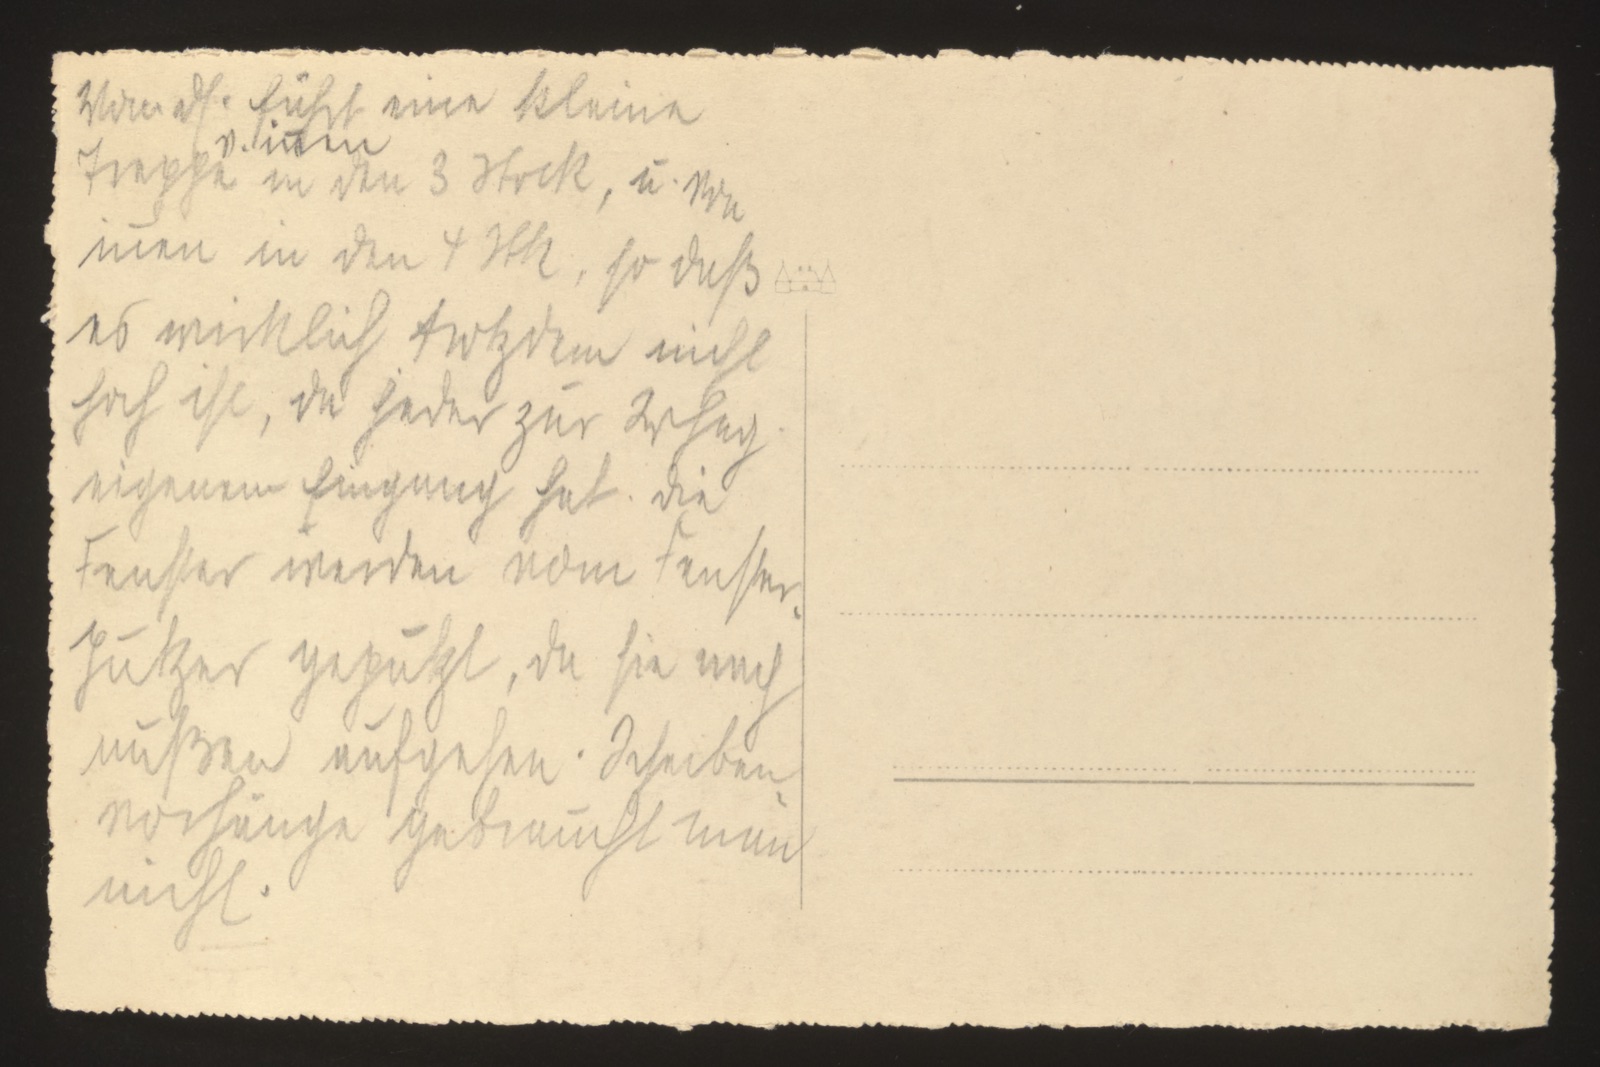 Von df. führt eine kleine
v. innen
Treppe in den 3 Stock, u. von
innen in den 4 Stk, so daß
es wirklich trotzdem nicht
hoch ist, da jeder zur Whng.
eigenem Eingang hat. die
Fenster werden vom Fenster-
putzer geputzt, da sie nach
außen aufgehen. Scheiben-
vorhänge gebraucht man
nicht.